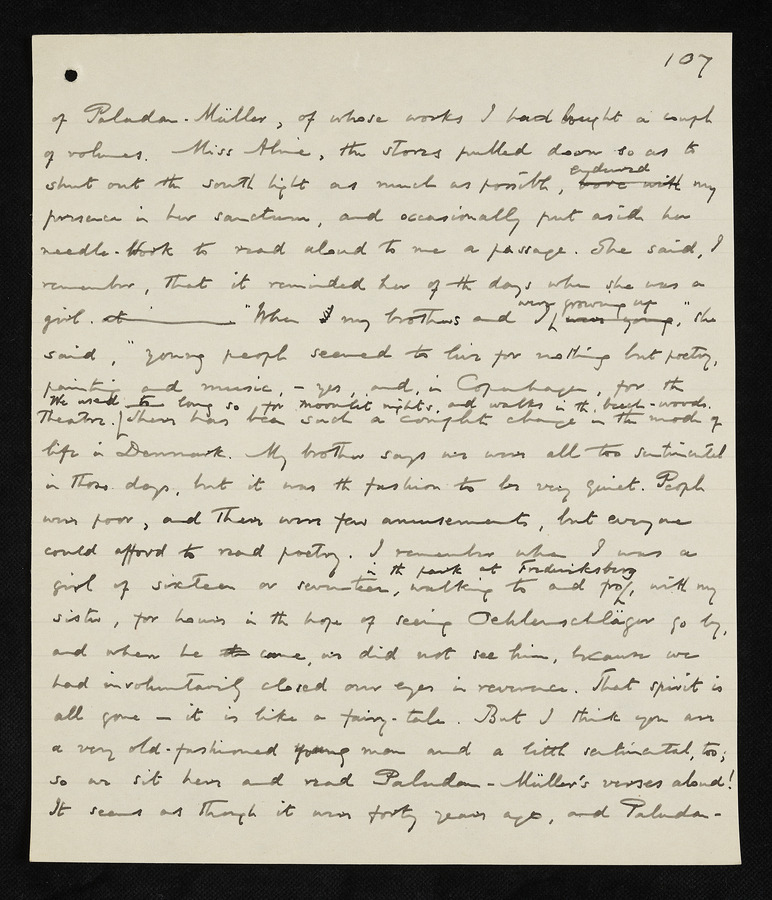 107
of Paludan-Müller, of whose works I had bought a couple
of volumes. Miss Aline, the stores pulled down so as to
shut out the south light as much as possible, bore with my
endured
presence in her sanctum, and occasionally put aside her
needle-work to read aloud to me a passage. She said, I
remember, that it reminded her of the days when she was a
girl. "When my brothers and I was young," she
were growing up
said, "young people seemed to live for nothing but poetry,
painting and music, – yes, and, in Copenhagen, for the
We used to long so for moonlit nights, and walks in the beech-woods.
theatre. There has been such a complete change in the mode of
life in Denmark. My brother says we were all too sentimental
in those days, but it was the fashion to be very quiet. People
were poor, and there were few amusements, but everyone
could afford to read poetry. I remember when I was a
in the park at Frederiksberg
girl of sixteen or seventeen, walking to and fro, with my
sister, for hours in the hope of seeing Oehlenschläger go by,
and when he the came, we did not see him, because we
had involuntarily closed our eyes in reverence. That spirit is
all gone – it is like a fairy-tale. But I think you are
a very old-fashioned young man and a little sentimental, too;
so we sit here and read Paludan-Müller's verses aloud!
It seems as though it were forty years ago, and Paludan-